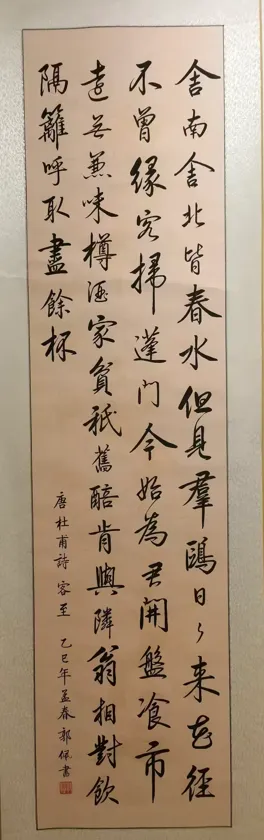 舍南舍北皆春水但見羣鷗日々来花徑
不曾緣客掃蓬門今始為君開盤飡市
遠無兼味樽酒家貧秖舊醅肯與隣翁相對飲
隔籬呼取盡餘杯
唐杜甫詩 客至 乙巳年孟春郭佩書